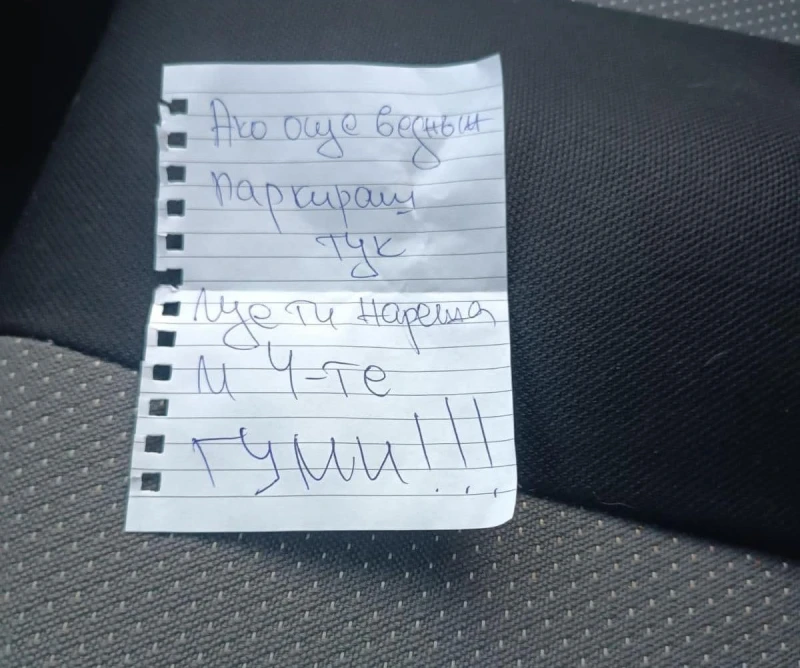 Ако още веднъж
паркираш
тук
ще ти нарежа
и 4-те
гуми!!!